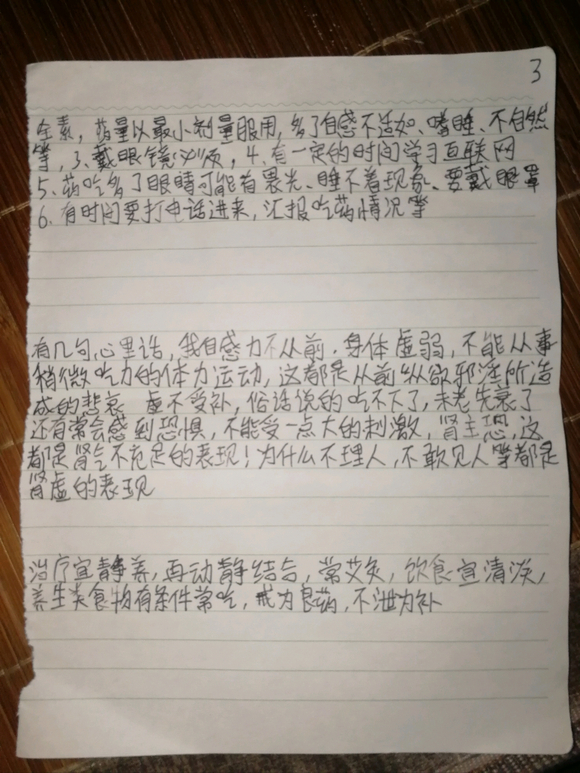 3
全素，药量以最小剂量服用，多了自感不适如、嗜睡、不自然
等，3、戴眼镜必须，4、有一定的时间学习互联网
5、药吃多了眼睛可能有畏光、睡不着现象、要戴眼罩
6、有时间要打电话进来，汇报吃药情况等
有几句心里话，我自感力不从前．身体虚弱，不能从事
稍微吃力的体力运动，这都是从前纵欲邪淫所造
成的悲哀 虚不受补，俗话说的吃不大了，未老先衰了
还有常会感到恐惧，不能受一点大的刺激，肾主恐，这
都是肾气不充足的表现！为什么不理人，不敢见人等都是
肾虚的表现
治疗宜静养，再动静结合，常艾灸，饮食宜清淡，
养生美食物有条件常吃，戒为良药，不泄为补